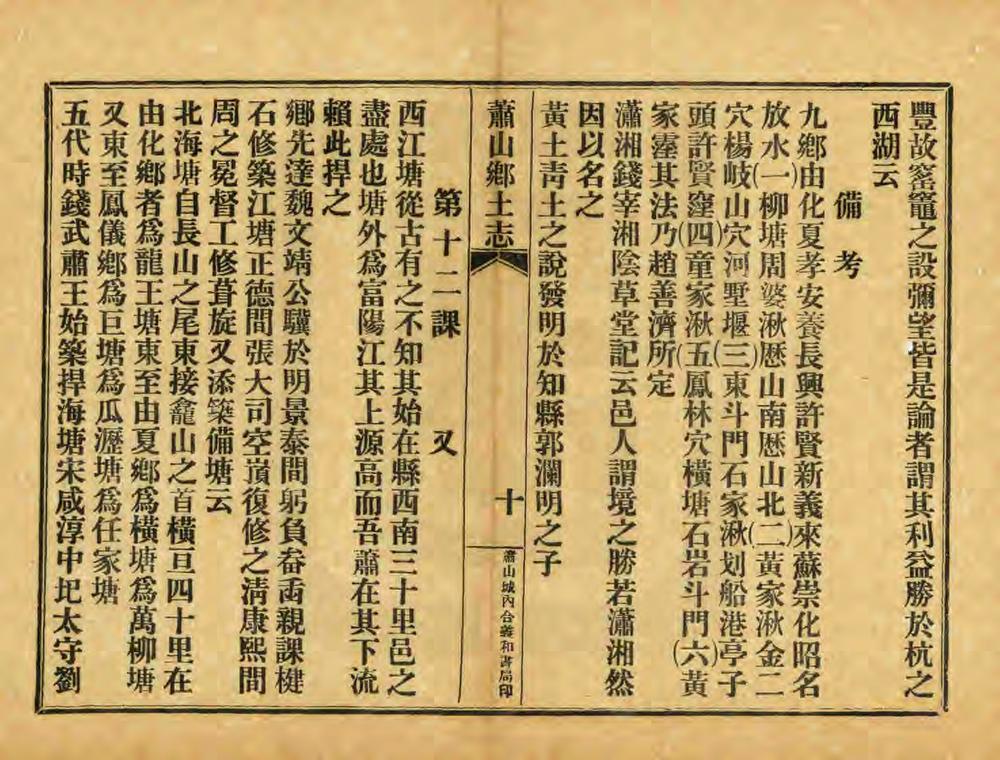 豐故窰竈之設彌望皆是論者謂其利益勝於杭之
西湖云
備考
九鄉由化夏孝安養長興許賢新義來蘇崇化昭名
放水(一)柳塘周婆湫歷山南歷山北(二)黃家湫金二
穴楊岐山穴河墅堰(三)東斗門石家湫划船港亭子
頭許賢窪(四)童家湫(五)鳳林穴橫塘石岩斗門(六)黃
家霪其法乃趙善濟所定
瀟湘錢宰湘陰草堂記云邑人謂境之勝若瀟湘然
因以名之
黃土靑土之說發明於知縣郭瀾明之子
蕭山鄉土志
十
蕭山城內合義和書局印
第十二課 又
西江塘從古有之不知其始在縣西南三十里邑之
盡處也塘外爲富陽江其上源高而吾蕭在其下流
賴此捍之
鄉先達魏文靖公驥於明景泰間躬負畚臿親課楗
石修築江塘正德間張大司空嵿復修之淸康熙間
周之冕督工修葺旋又添築備塘云
北海塘自長山之尾東接龕山之首橫亘四十里在
由化鄉者爲龍王塘東至由夏鄉爲橫塘爲萬柳塘
又東至鳳儀鄉爲巨塘爲瓜瀝塘爲任家塘
五代時錢武肅王始築捍海塘宋咸淳中圯太守劉